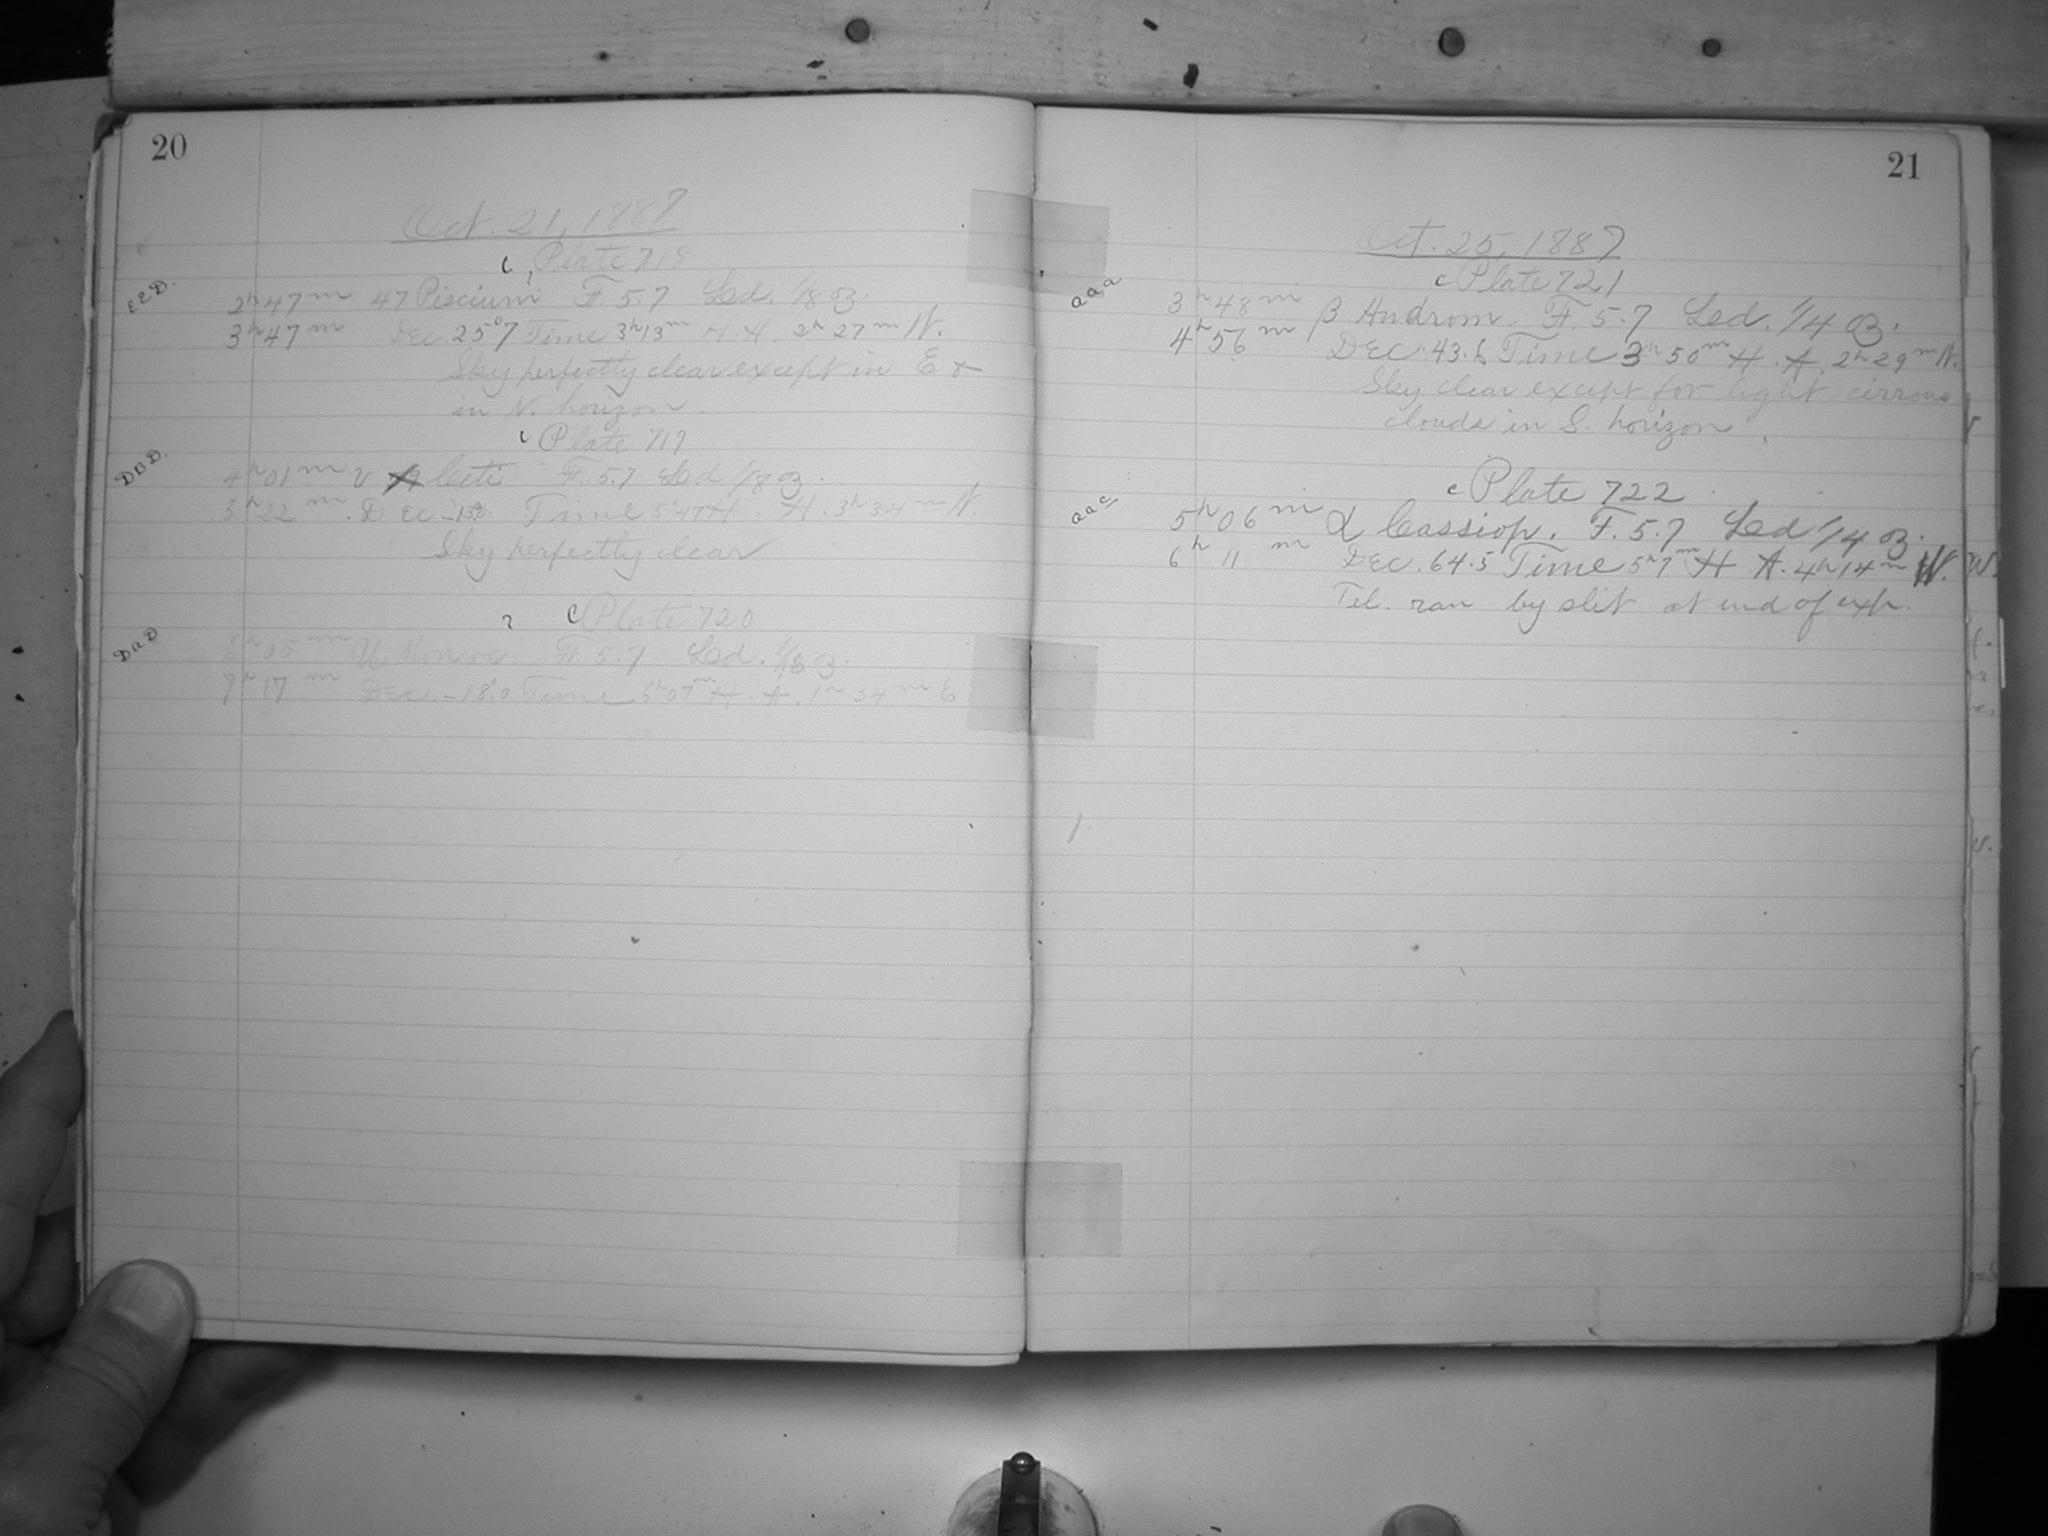 20
Oct. 21, 1887
c Plate 718
EED. 2h47m 47 Piscium F. 5.7 Sed. 1/8 B.
3h47m Dec. 25°7 Time 3h13m H. A. 2h27m W.
Sky perfectly clear except in E &
in N. horizon.
c Plate 719
DBD. 4h01m υ Ceti F. 5.7 Sed 1/8 B.
22m Dec Time 5h47 H. A. 3h34m W.
Sky perfectly clear
? c Plate 720
DaD 05m F. 5.7 Sed. 1/8 B.
17m Dec. -18.0 Time 6h07m H. A. 1h34m E
21
Oct. 25, 1887
c Plate 721
aaa 3h48m β Androm. F. 5.7 Sed. 1/4 B.
4h56m Dec. 43.6 Time 3h50m H. A. 2h29m W.
Sky clear except for light cirrous
clouds in S. horizon.
c Plate 722
aac 5h06m α Cassiop. F. 5.7 Sed 1/4 B.
6h11m Dec. 64.5 Time 5h7m H A. 4h14m W. W.
Tel. ran by slit at end of exp.